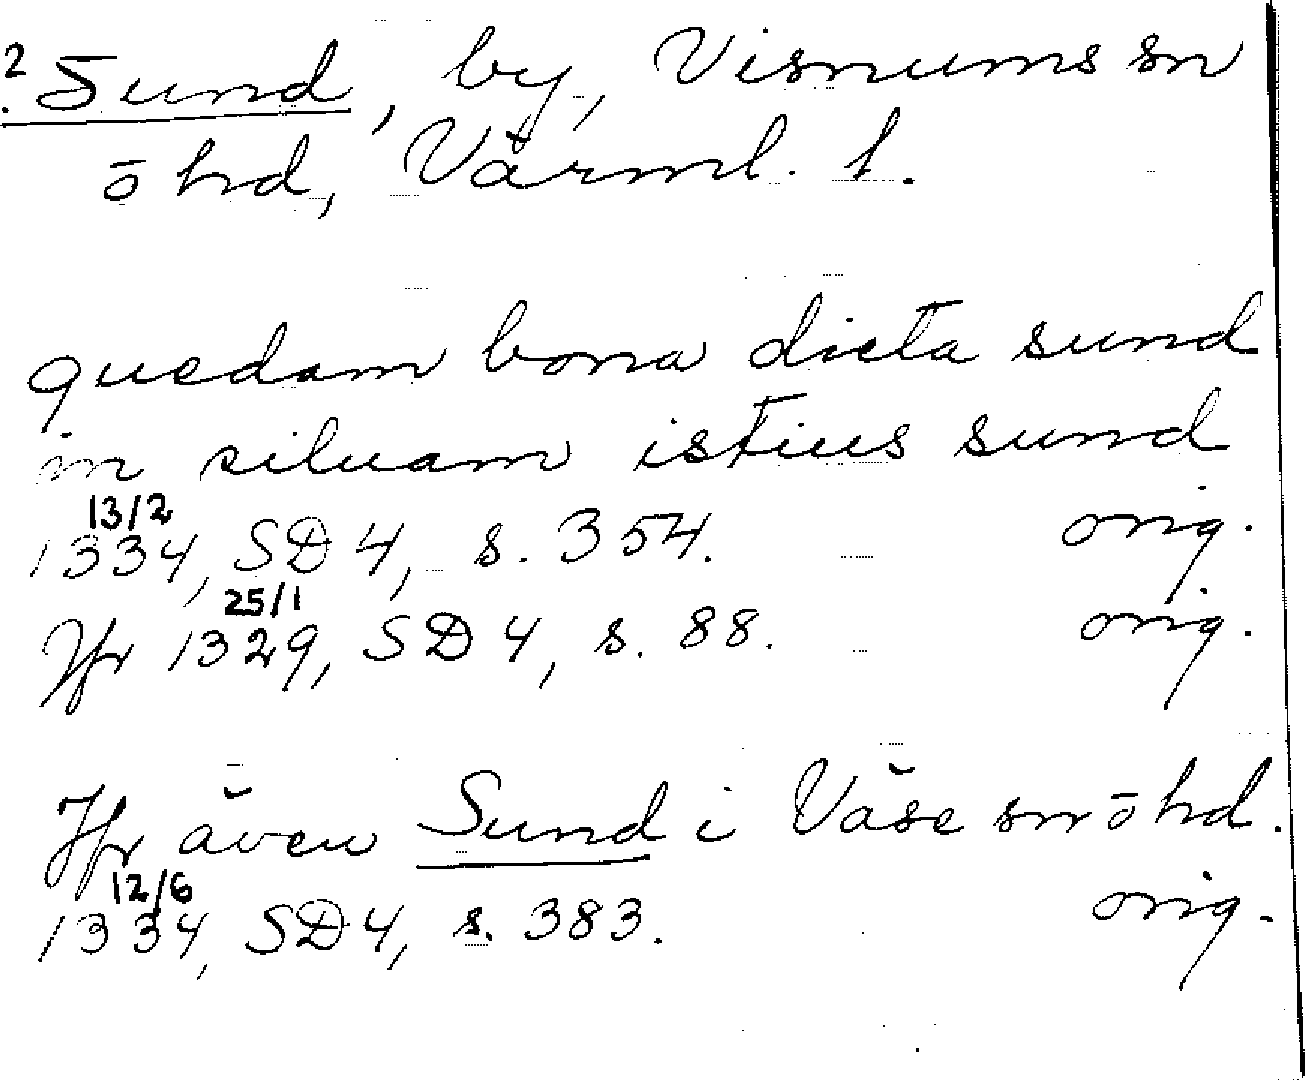 2. Sund, by, Visnums sn
ö hd, Värml. l.
quedam bona dicta sund
in siluam istius sund
13/2
1334, SD 4, s. 354. orig.
25/1
Jfr 1329, SD 4, s. 88. orig.
Jfr även Sund i Väse sn ö hd.
12/6
1334, SD 4, s. 383. orig.